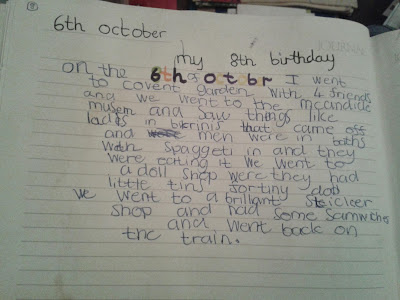 6th october
my 8th birthday
on the 6th of octbr I went
to covent garden with 4 friends
and we went to the mcandicle
musem and saw things like
ladies in bikinis that came off
and were men were in baths
with spaggeti in and they
were eating it we went to
a doll shop were they had
little tiny for tiny doll
we went to a brilliant sticker
shop and had some samwches
and went back on
the train.